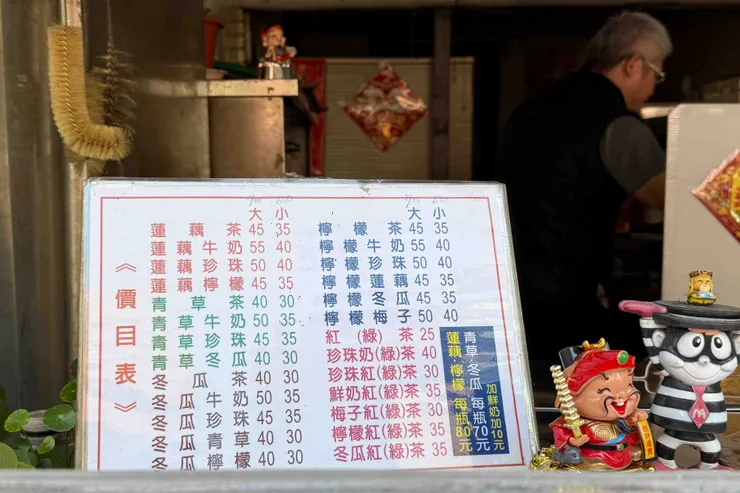 《價目表》
大 小
蓮藕茶 45 35
蓮藕牛奶 55 40
蓮藕珍珠 50 40
蓮藕檸檬 45 35
青草茶 40 30
青草牛奶 50 35
青草珍珠 45 35
青草冬瓜 40 30
冬瓜茶 40 30
冬瓜牛奶 50 35
冬瓜珍珠 45 35
冬瓜青草 40 30
冬瓜檸檬 40 30
大 小
檸檬茶 45 35
檸檬牛奶 55 40
檸檬珍珠 50 40
檸檬蓮藕 45 35
檸檬冬瓜 45 35
檸檬梅子 50 40
紅(綠)茶 25
珍珠奶(綠)茶 40
珍珠紅(綠)茶 30
鮮奶紅(綠)茶 35
梅子紅(綠)茶 30
檸檬紅(綠)茶 35
冬瓜紅(綠)茶 35
青草·冬瓜每瓶70元
蓮藕·檸檬每瓶80元
加鮮奶加10元